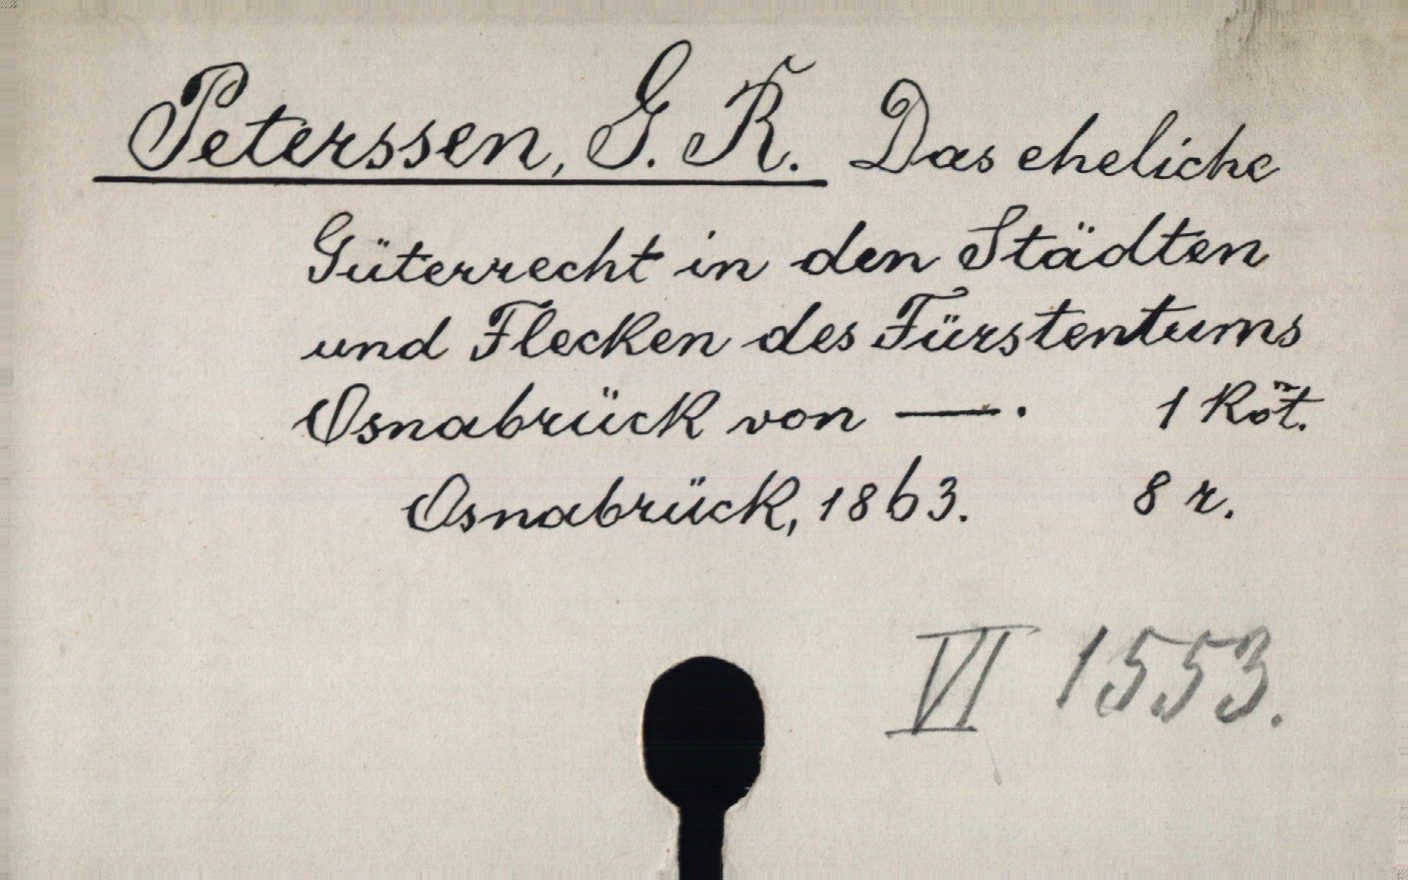 Peterssen, G. R. Das eheliche
Güterrecht in den Städten
und Flecken des Fürstentums
Osnabrück von —. 1 Köt.
Osnabrück, 1863. 8 r.
VI 1553.